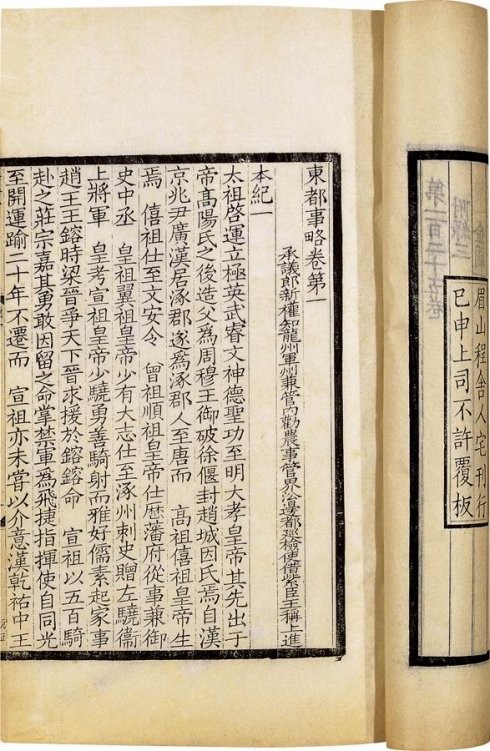 眉山程舍人宅刊行
已申上司不許覆板
東都事略卷第一
承議郎新權知龍州軍州兼管內勸農事管界沿邊都巡檢使借紫臣王稱上進
本紀一
太祖啓運立極英武睿文神德聖功至明大孝皇帝其先出于
帝高陽氏之後造父爲周穆王御破徐偃封趙城因氏焉自漢
京兆尹廣漢居涿郡遂爲涿郡人至唐而　高祖僖祖皇帝生
焉　僖祖仕至文安令　曾祖順祖皇帝仕歷藩府從事兼御
史中丞　皇祖翼祖皇帝少有大志仕至涿州刺史贈左驍衞
上將軍　皇考宣祖皇帝少驍勇善騎射而雅好儒素起家事
趙王王鎔時梁晉爭天下晉求援於鎔鎔命　宣祖以五百騎
赴之莊宗嘉其勇敢因留之命掌禁軍爲飛捷指揮使自同光
至開運踰二十年不遷而　宣祖亦未嘗以介意漢乾祐中王